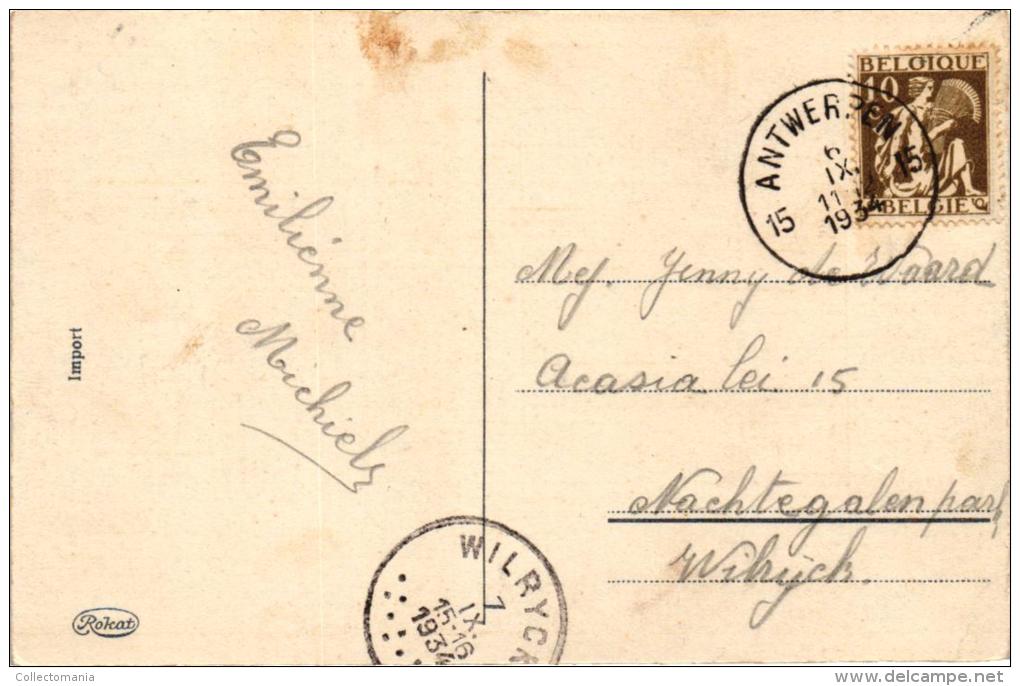 BELGIQUE
10
BELGIE
ANTWERPEN
6
IX.
11
1934
15 15
Emiliénne
Michiels
Mej. Jenny de Waard
Acasia lei 15
Nachtegalenpark
Wilryck.
Import
WILRYCK
7
IX.
15-16
1934
Rokat
Collectomania
delcampe.net